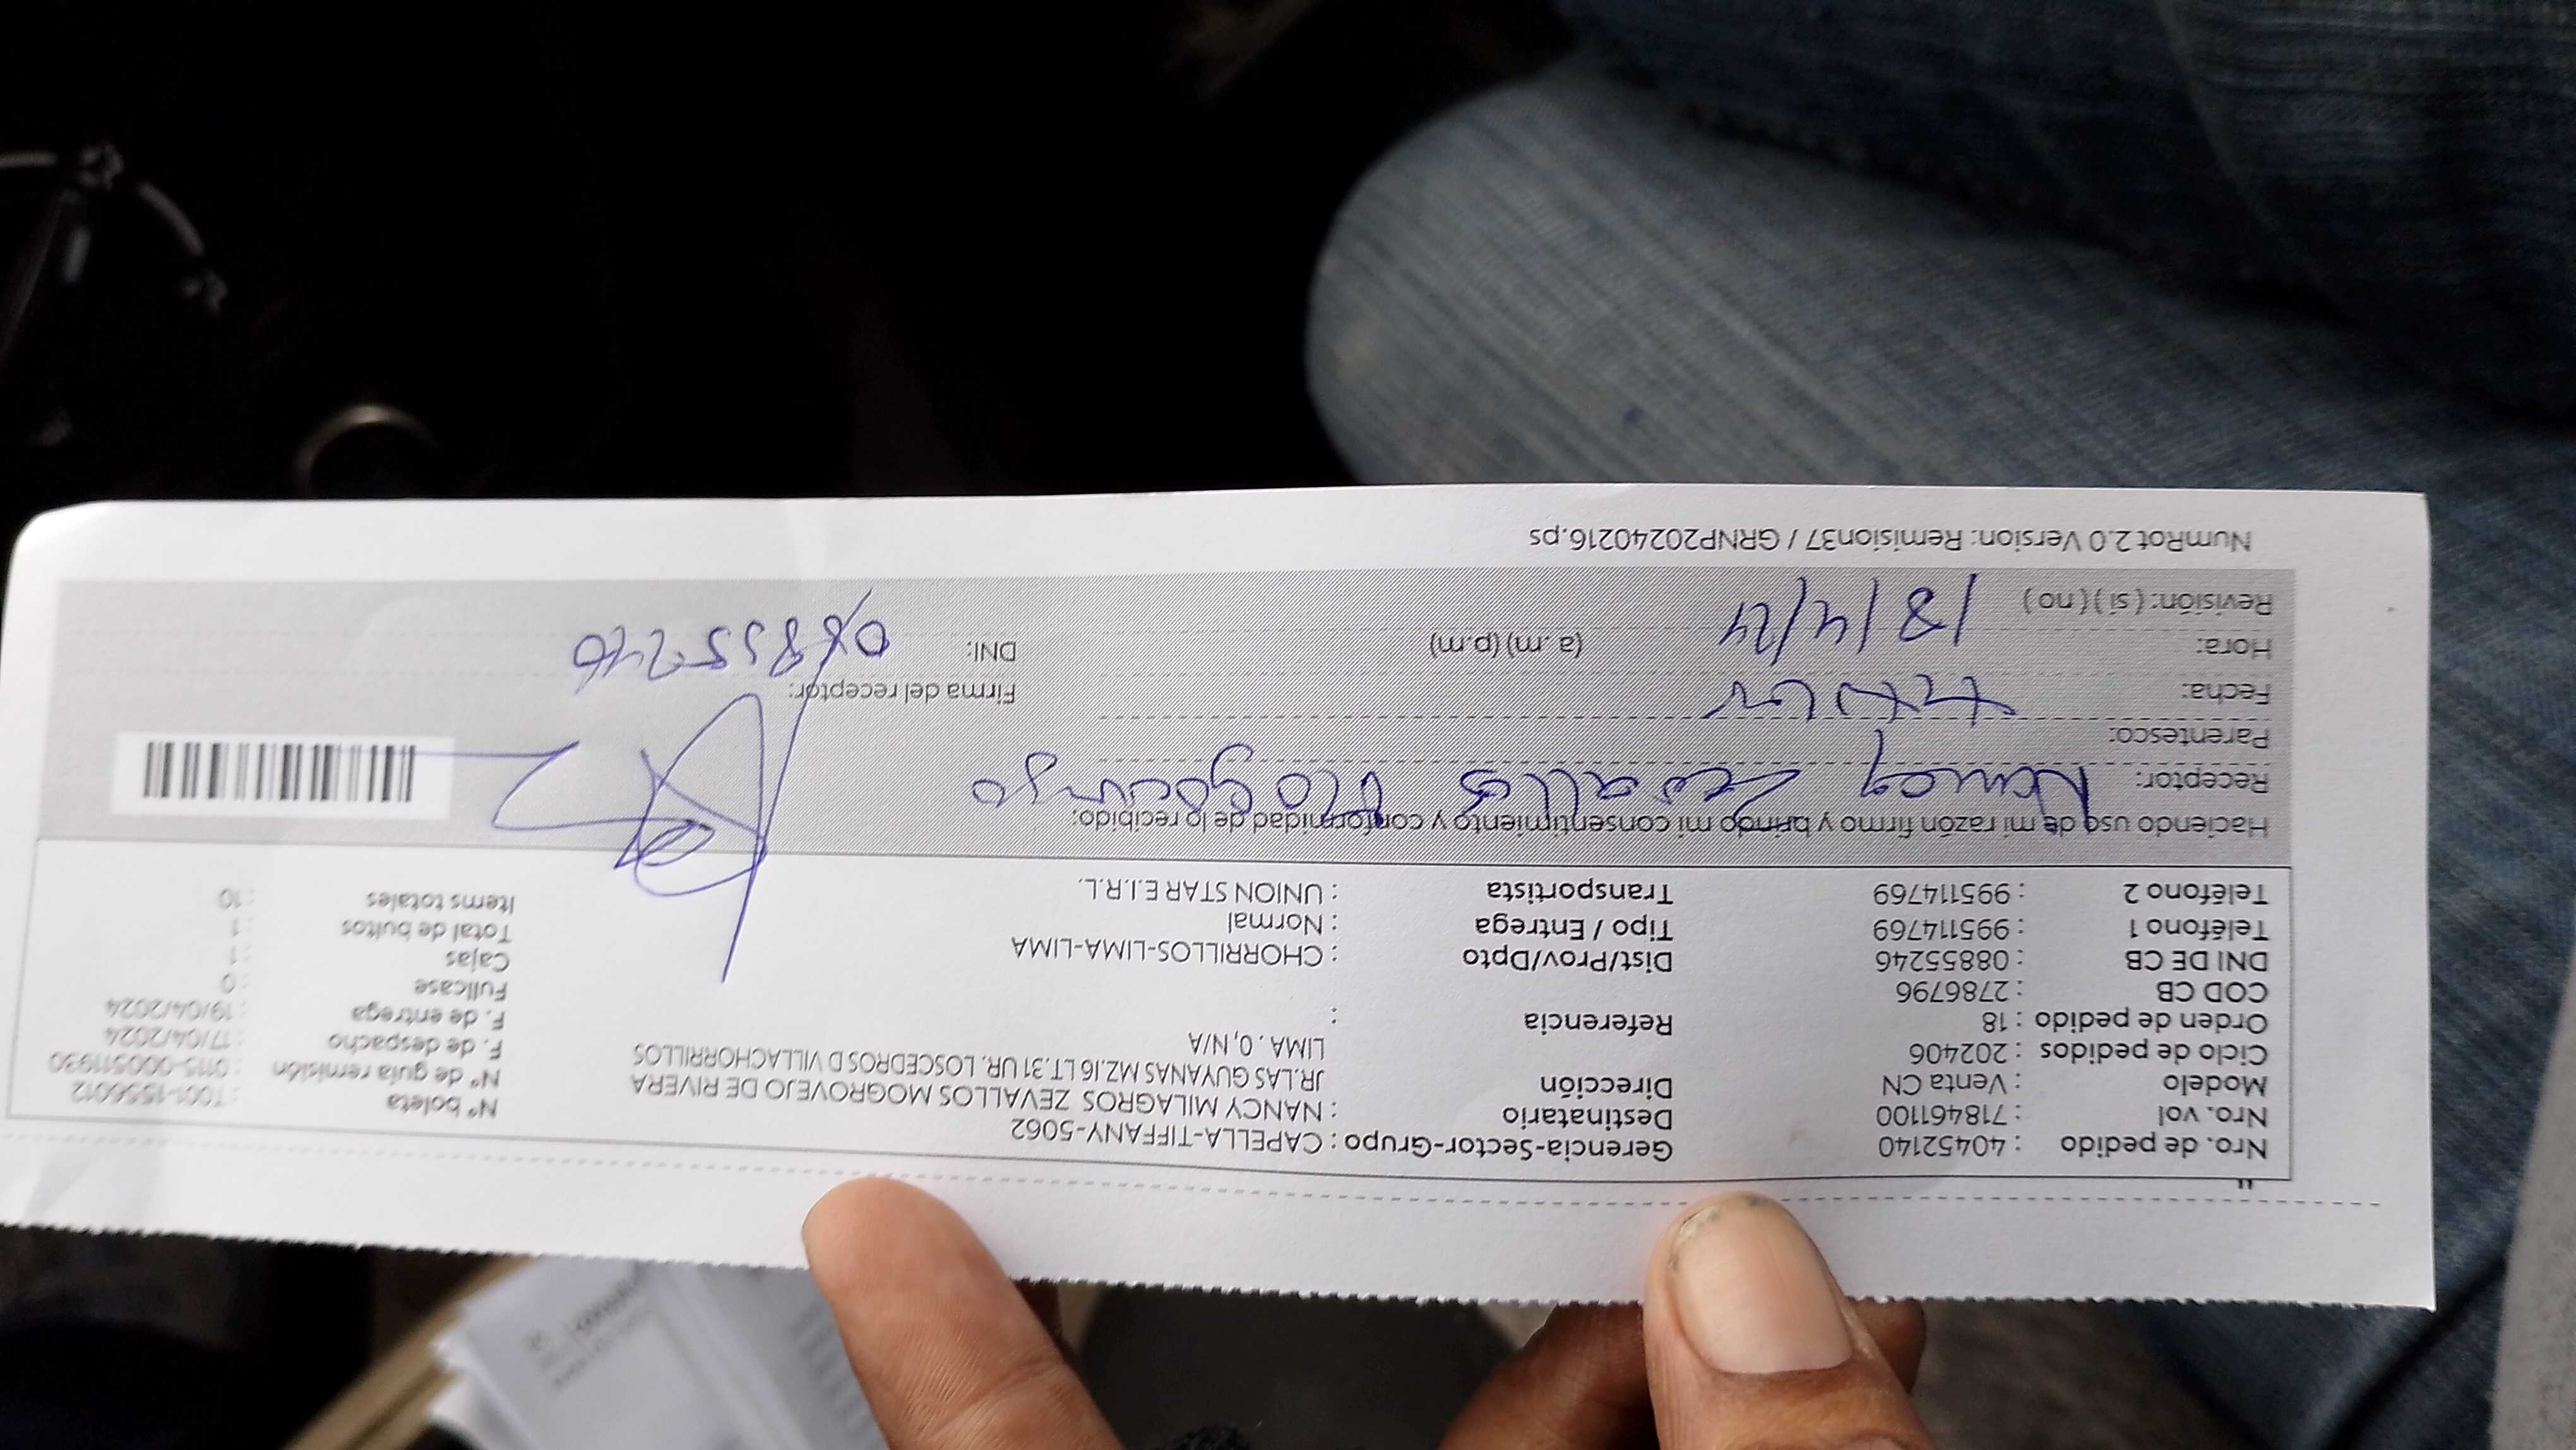 Nro. de pedido : 40452140 Gerencia-Sector-Grupo : CAPELLA-TIFFANY-5062
Nro. vol : 718461100 Destinatario : NANCY MILAGROS ZEVALLOS MOGROVEJO DE RIVERA Nº boleta : T001-1556012
Modelo : Venta CN Dirección JR.LAS GUYANAS MZ.16 LT.31 UR. LOSCEDROS D VILLACHORRILLOS Nº de guía remisión : 0115-000511930
Ciclo de pedidos : 202406 LIMA . 0, N/A F. de despacho : 17/04/2024
Orden de pedido : 18 Referencia : F. de entrega : 19/04/2024
COD CB : 2786796 Fullcase : 0
DNI DE CB : 08855246 Dist/Prov/Dpto : CHORRILLOS-LIMA-LIMA Cajas : 1
Teléfono 1 : 995114769 Tipo / Entrega : Normal Total de bultos : 1
Teléfono 2 : 995114769 Transportista : UNION STAR E.I.R.L. Items totales : 10
Haciendo uso de mi razón firmo y brindo mi consentimiento y conformidad de lo recibido:
Receptor: Nancy Zevallos Mogrovejo
Parentesco:
Fecha: Firma del receptor:
Hora: 18/4/24 (a .m) (p.m) DNI: 08855246
Revisión: ( si ) ( no )
NumRot 2.0 Version: Remision37 / GRNP20240216.ps